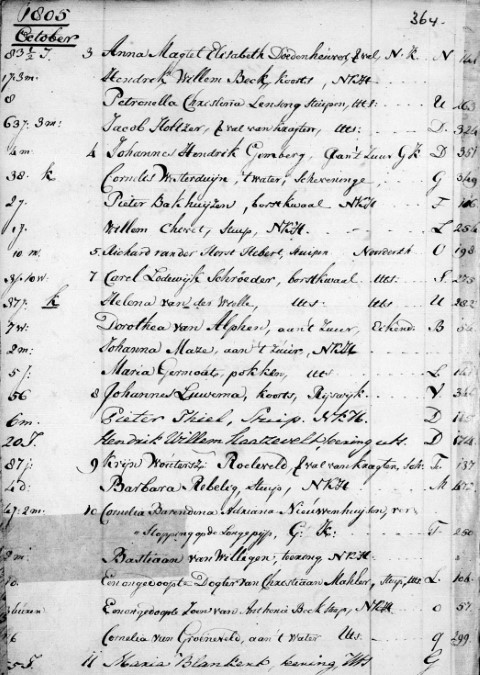 1805 364.
October
83½ J. 3 Anna Magtet Elisabeth &val N. K. N
17.3m. Hendrik Willem Beck, koorts, N:K:H.
8 Petronella Christina Lensing Stuipen, Uts: U 263
63j. 3m: Jacob Holtzer, &val van kragten, Uts: D. 324
4m 4 Johannes Hendrik Gomberg, aan't Zuur G K D 351
38. k Cornelis Westerduijn, 't water, Scheveninge G 349
27. Pieter Bakhuijzen, borstkwaal N:K:H T 106
1j. Willem Chevet, Stuip, N:K:H. L 254
10 m. 5 Richard van der Horst Hebert, Stuipen Noorderkh O 198
3j. 10w: 7 Carel Lodewijk Schröeder, borstkwaal Uts: S. 275
37j. k Helena van der Welle, Uts: Uts U 202
7w: Dorothea van Alphen, aan't Zuur, Eikend: B
2m: Johanna Maze, aan 't Zuur, N:K:H
5j. Maria Germoats, pokken, Uts L
56 8 Johannes Luwema, koorts, Rijswijk. V
6m. Pieter Thiel, Stuip. N:K:H. D
20 J. Hendrik Willem teering uts. D
87j: 9 Krijn Woutersz: Roeleveld, &val van kragten, Sch: T. 137
4d: Barbara Rebelig, Stuip, N:K:H M
47: 2m: 10 Cornelia Barendina Adriana Nieuwenhuijzen, ver
Stopping op de Longepijp, G: K: T 250
2m: Bastiaan van Willigen, teering N:K:H
10. Een ongedoopte Dogter van Christiaan Mahler, Stuip, Uts L. 106
Een ongedoopte Zoon van Anthonie Beek Stuip, N:K:H O 57.
Cornelia van Groeneveld, aan't water Uts. 299.
11 Maria Blankert, teering, Uts G